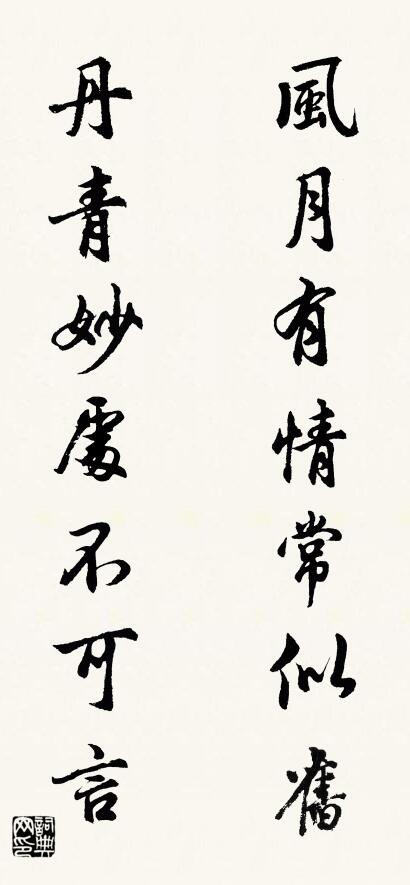 風月有情常似舊
丹青妙處不可言
詞典網印